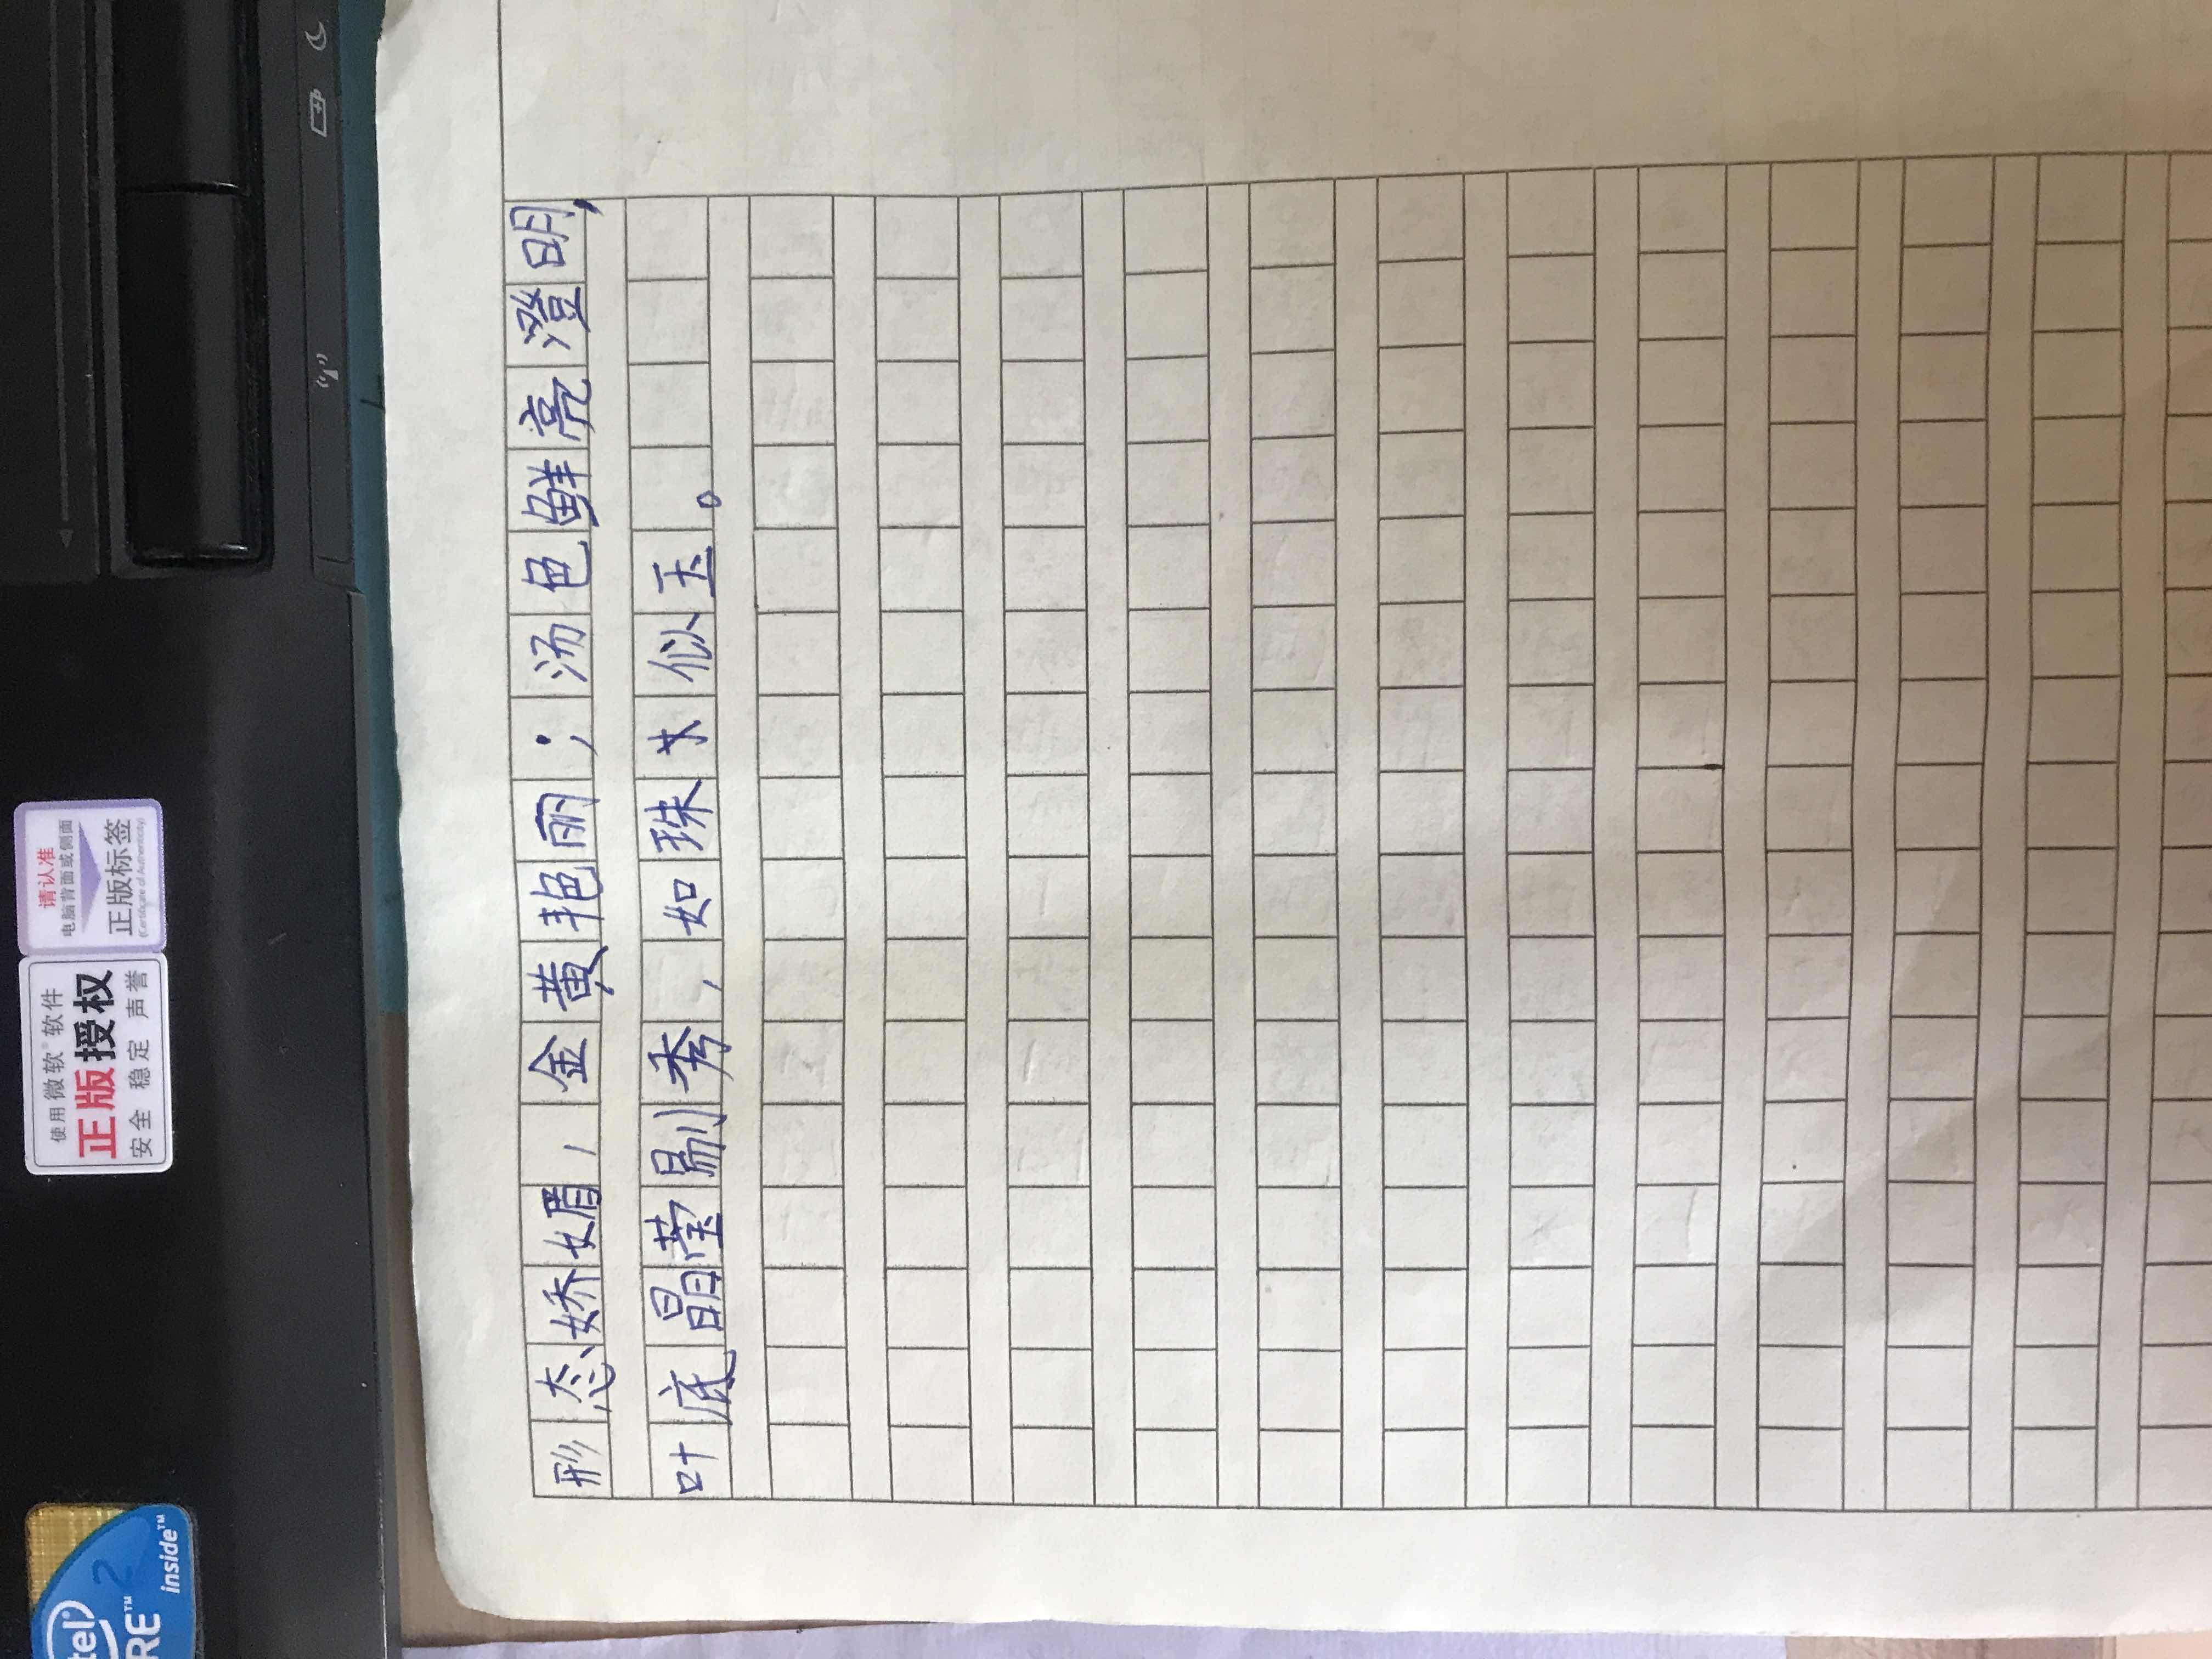 使用微软®软件
正版授权
安全 稳定 声誉
请认准
电脑背面或侧面
正版标签
(Certificate of Authenticity)
tel
RE™2
inside™
形态娇媚,金黄艳丽;汤色鲜亮澄明,
叶底晶莹剔秀,如珠似玉。